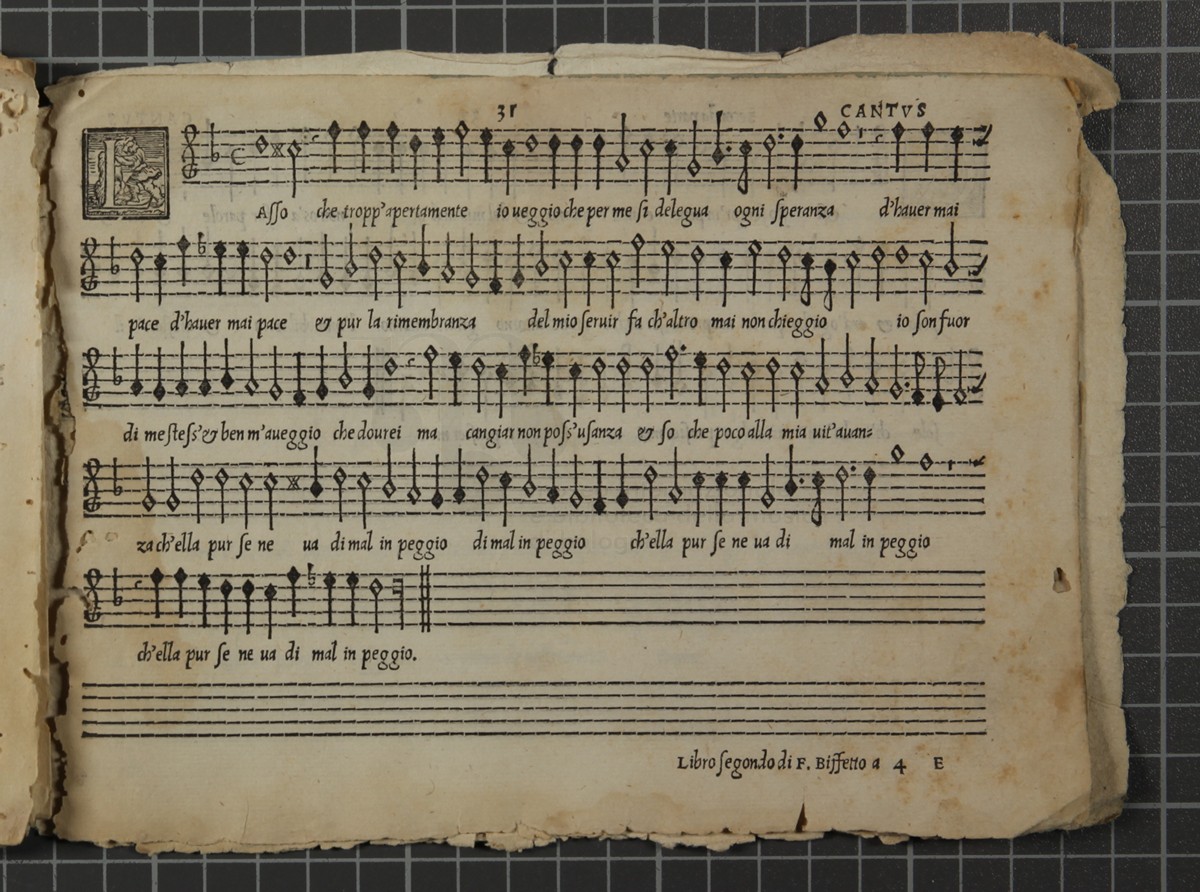 31 CANTVS
L Asso che tropp'apertamente io ueggio che per me si delegua ogni speranza d'hauer mai
pace d'hauer mai pace & pur la rimembranza del mio seruir fa ch'altro mai non chieggio io son fuor
di me stess'& ben m'aueggio che dourei ma cangiar non poss'usanza & so che poco alla mia uit'auanz
za ch'ella pur se ne ua di mal in peggio di mal in peggio ch'ella pur se ne ua di mal in peggio
ch'ella pur se ne ua di mal in peggio.
Libro segondo di F. Biffetto a 4 E